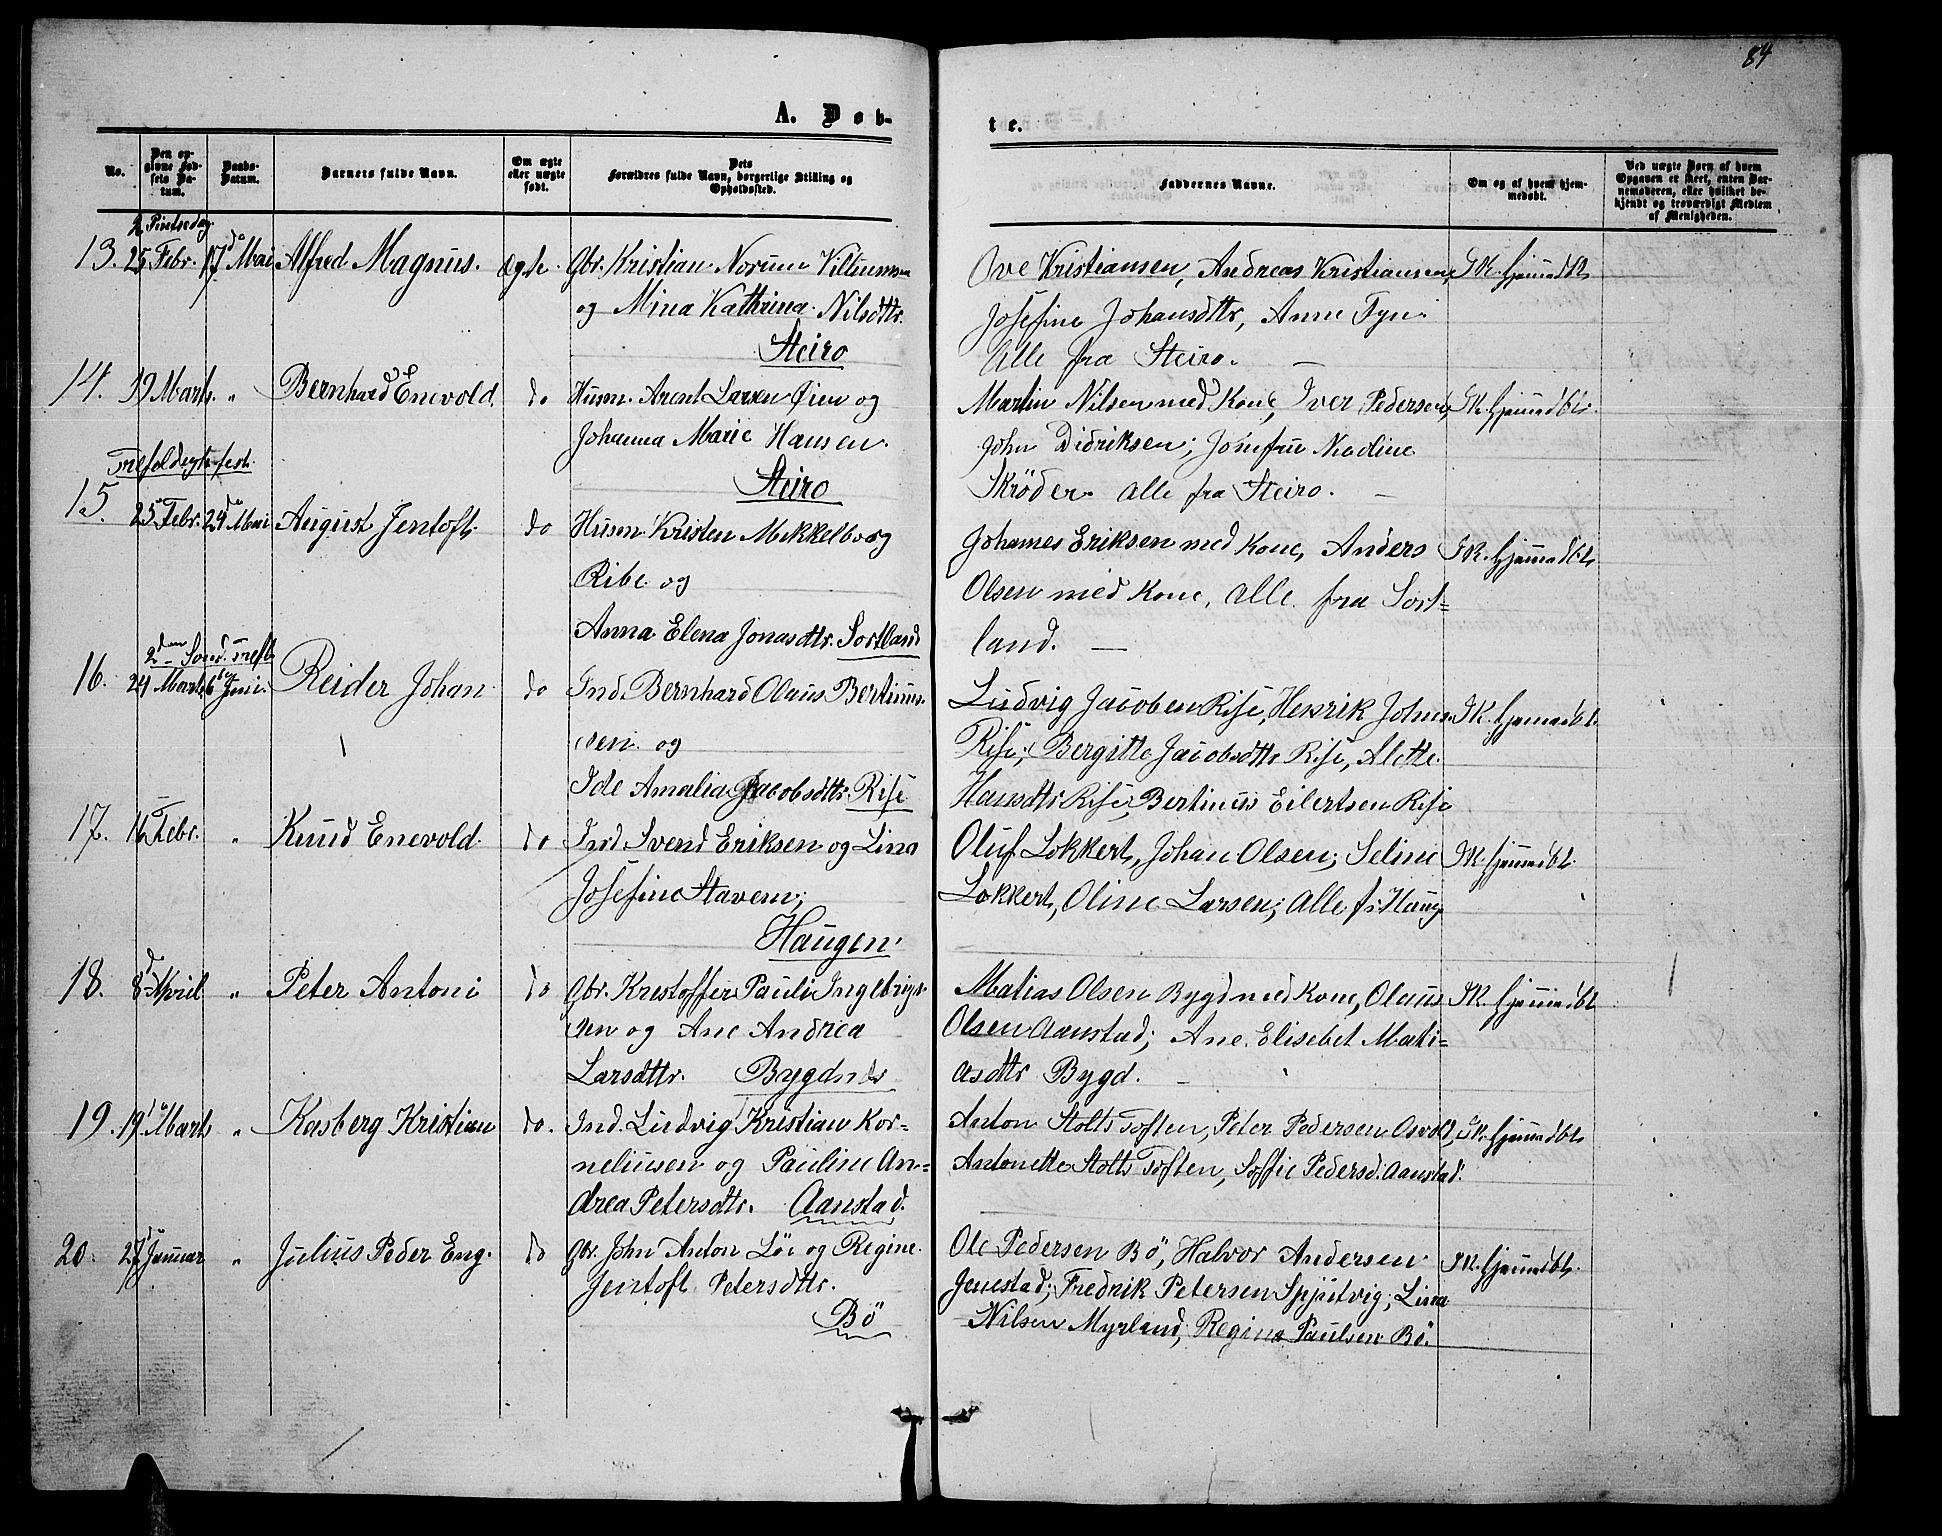 84
A. Døb-
te.
No.
Den opgivne Fødsels Datum.
Daabs-Datum.
Barnets fulde Navn.
Om ægte eller uægte født.
Dets Forældres fulde Navn, borgerlige Stilling og Opholdssted.
Faddernes Navne.
Om og af hvem hjemmedøbt.
Ved uægte Børn af hvem Opgaven er skeet, enten Barnemoderen, eller hvilket bekjendt og troværdigt Medlem af Menigheden.
2 Pintsedag
13. 25 Febr. 17de Mai Alfred Magnus. Ægte. Gbr. Kristian Norum
og Mina Kathrina Nilsdttr.
Steiro
Ove Kristiansen, Andreas Kristiansen, IK. hjemmedbt.
Josefine Johansdttr, Anne Fyn.
Alle fra Steiro. —
14. 19 Marts. " Bernhard Enevold. do Husm. Arent Larsen Øien og
Johanna Marie Hansen.
Steiro
Martin Nilsen med Kone, Iver Pedersen, IK. hjemmedbt.
John Didriksen; Jomfru Nicoline
Skrøder. Alle fra Steiro. —
Trefoldigh.fest.
15. 25 Febr. 24de Mai August Jentoft do Husm. Kristen Mikkelborg
Ribe og
Anna Elena Jonasdttr. Sortland
Johannes Eriksen med Kone, Anders IK. hjemmedbt.
Olsen med Kone, Alle fra Sort=
land. —
2den Sønd. Trefl.
16. 24 Marts 6te Juni. Reider Johan do Ind. Bernhard Olaus Bertinus-
sen og
Ide Amalia Jacobsdttr. Rise
Ludvig Jacobsen Rise, Henrik Johns. IK. hjemmedbt.
Rise; Bergitte Jacobsdttr Rise, Alette
Hansdttr Rise, Bertinus Eilertsen Rise
17. 16 Febr. " Knud Enevold. do Ind Svend Eriksen og Lina
Josefine Stavem;
Haugen.
Oluf Lokkert, Johan Olsen; Seline IK. hjemmedbt.
Lokkert, Oline Larsen; Alle f. Haug
18. 8d April " Peter Antoni do Gbr. Kristoffer Pauli Ingebrigt-
sen og Ane Andrea
Larsdttr. Bygdnes
Matias Olsen Bygd med Kone, Olaus IK. hjemmedbt
Olsen Aanstad; Ane Elisebet Mati=
asdttr Bygd. —
19. 19 Marts " Kasberg Kristian do. Ind. Ludvig Kristian Kor=
neliusen og Pauline An=
drea Petersdtr. Aanstad.
Anton Stolts Toften, Peter Pedersen Osvold, IK. hjemmedbt.
Antonette Stolts Toften, Soffie Pedersd. Aanstad.
20. 27 Januar " Julius Peder Eng. do Gbr. John Anton Löe og Regine
Jentoft Petersdttr.
Bö
Ole Pedersen Bö, Halvor Andersen IK. hjemmedbt.
Jennestad; Fredrik Petersen Spjutvig; Lina
Nilsen Myrland; Regina Paulsen Bö.